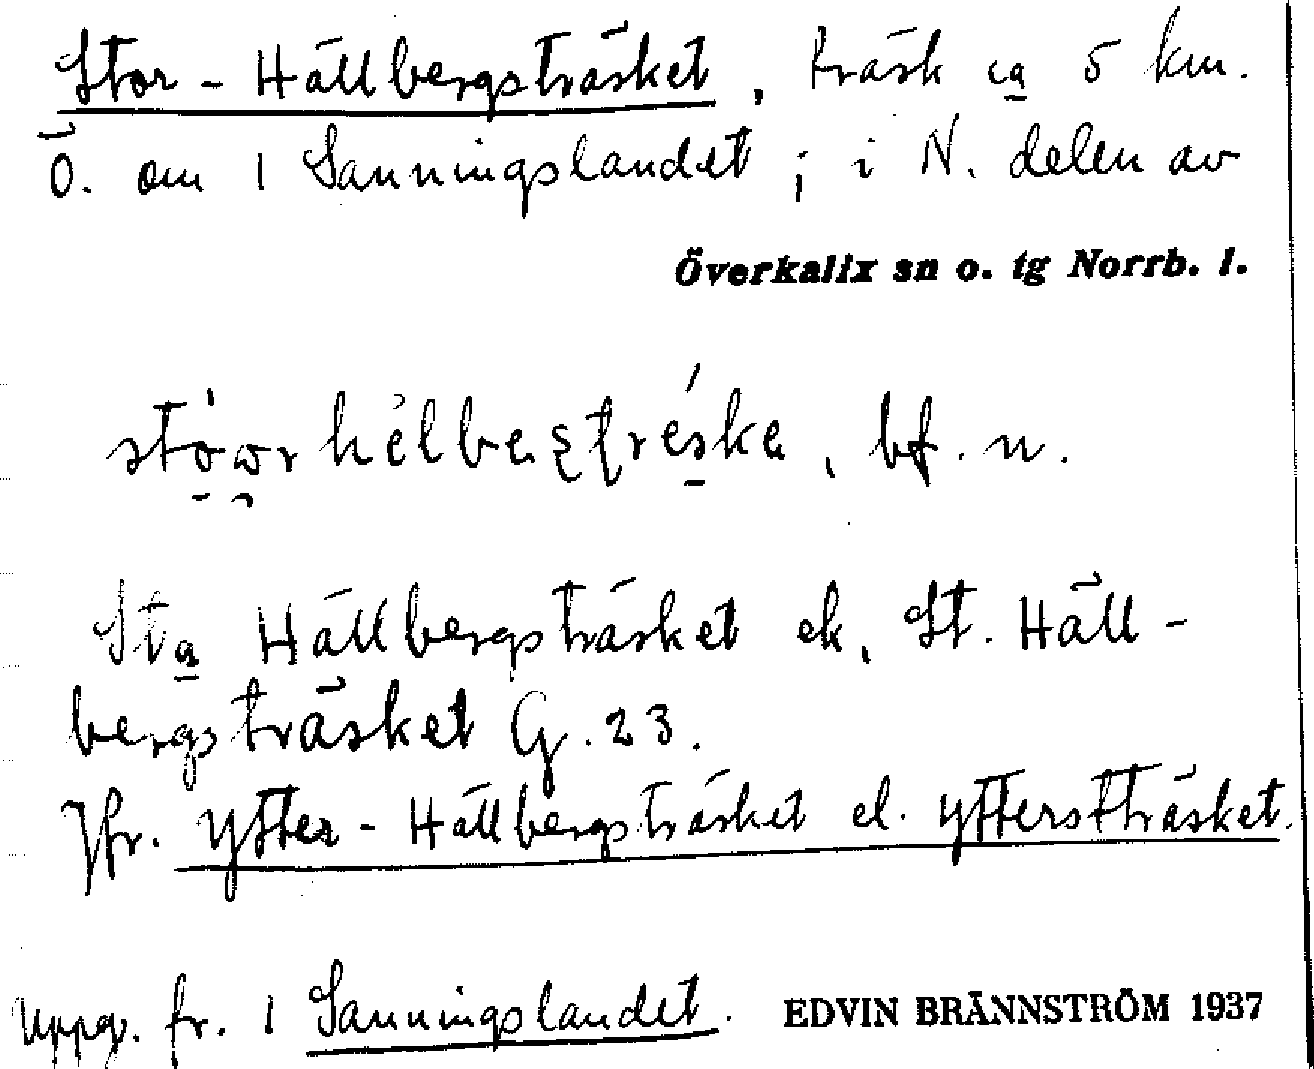 Stor-Hällbergsträsket, träsk ca 5 km.
Ö. om 1 Sanningslandet; i N. delen av
Överkalix sn o. tg Norrb. l.
bf. n.
Sta Hällbergsträsket ek, St. Häll-
bergsträsket G. 23.
Jfr. Ytter-Hällbergsträsket el. Ytterstträsket.
Uppg. fr. 1 Sanningslandet. EDVIN BRÄNNSTRÖM 1937